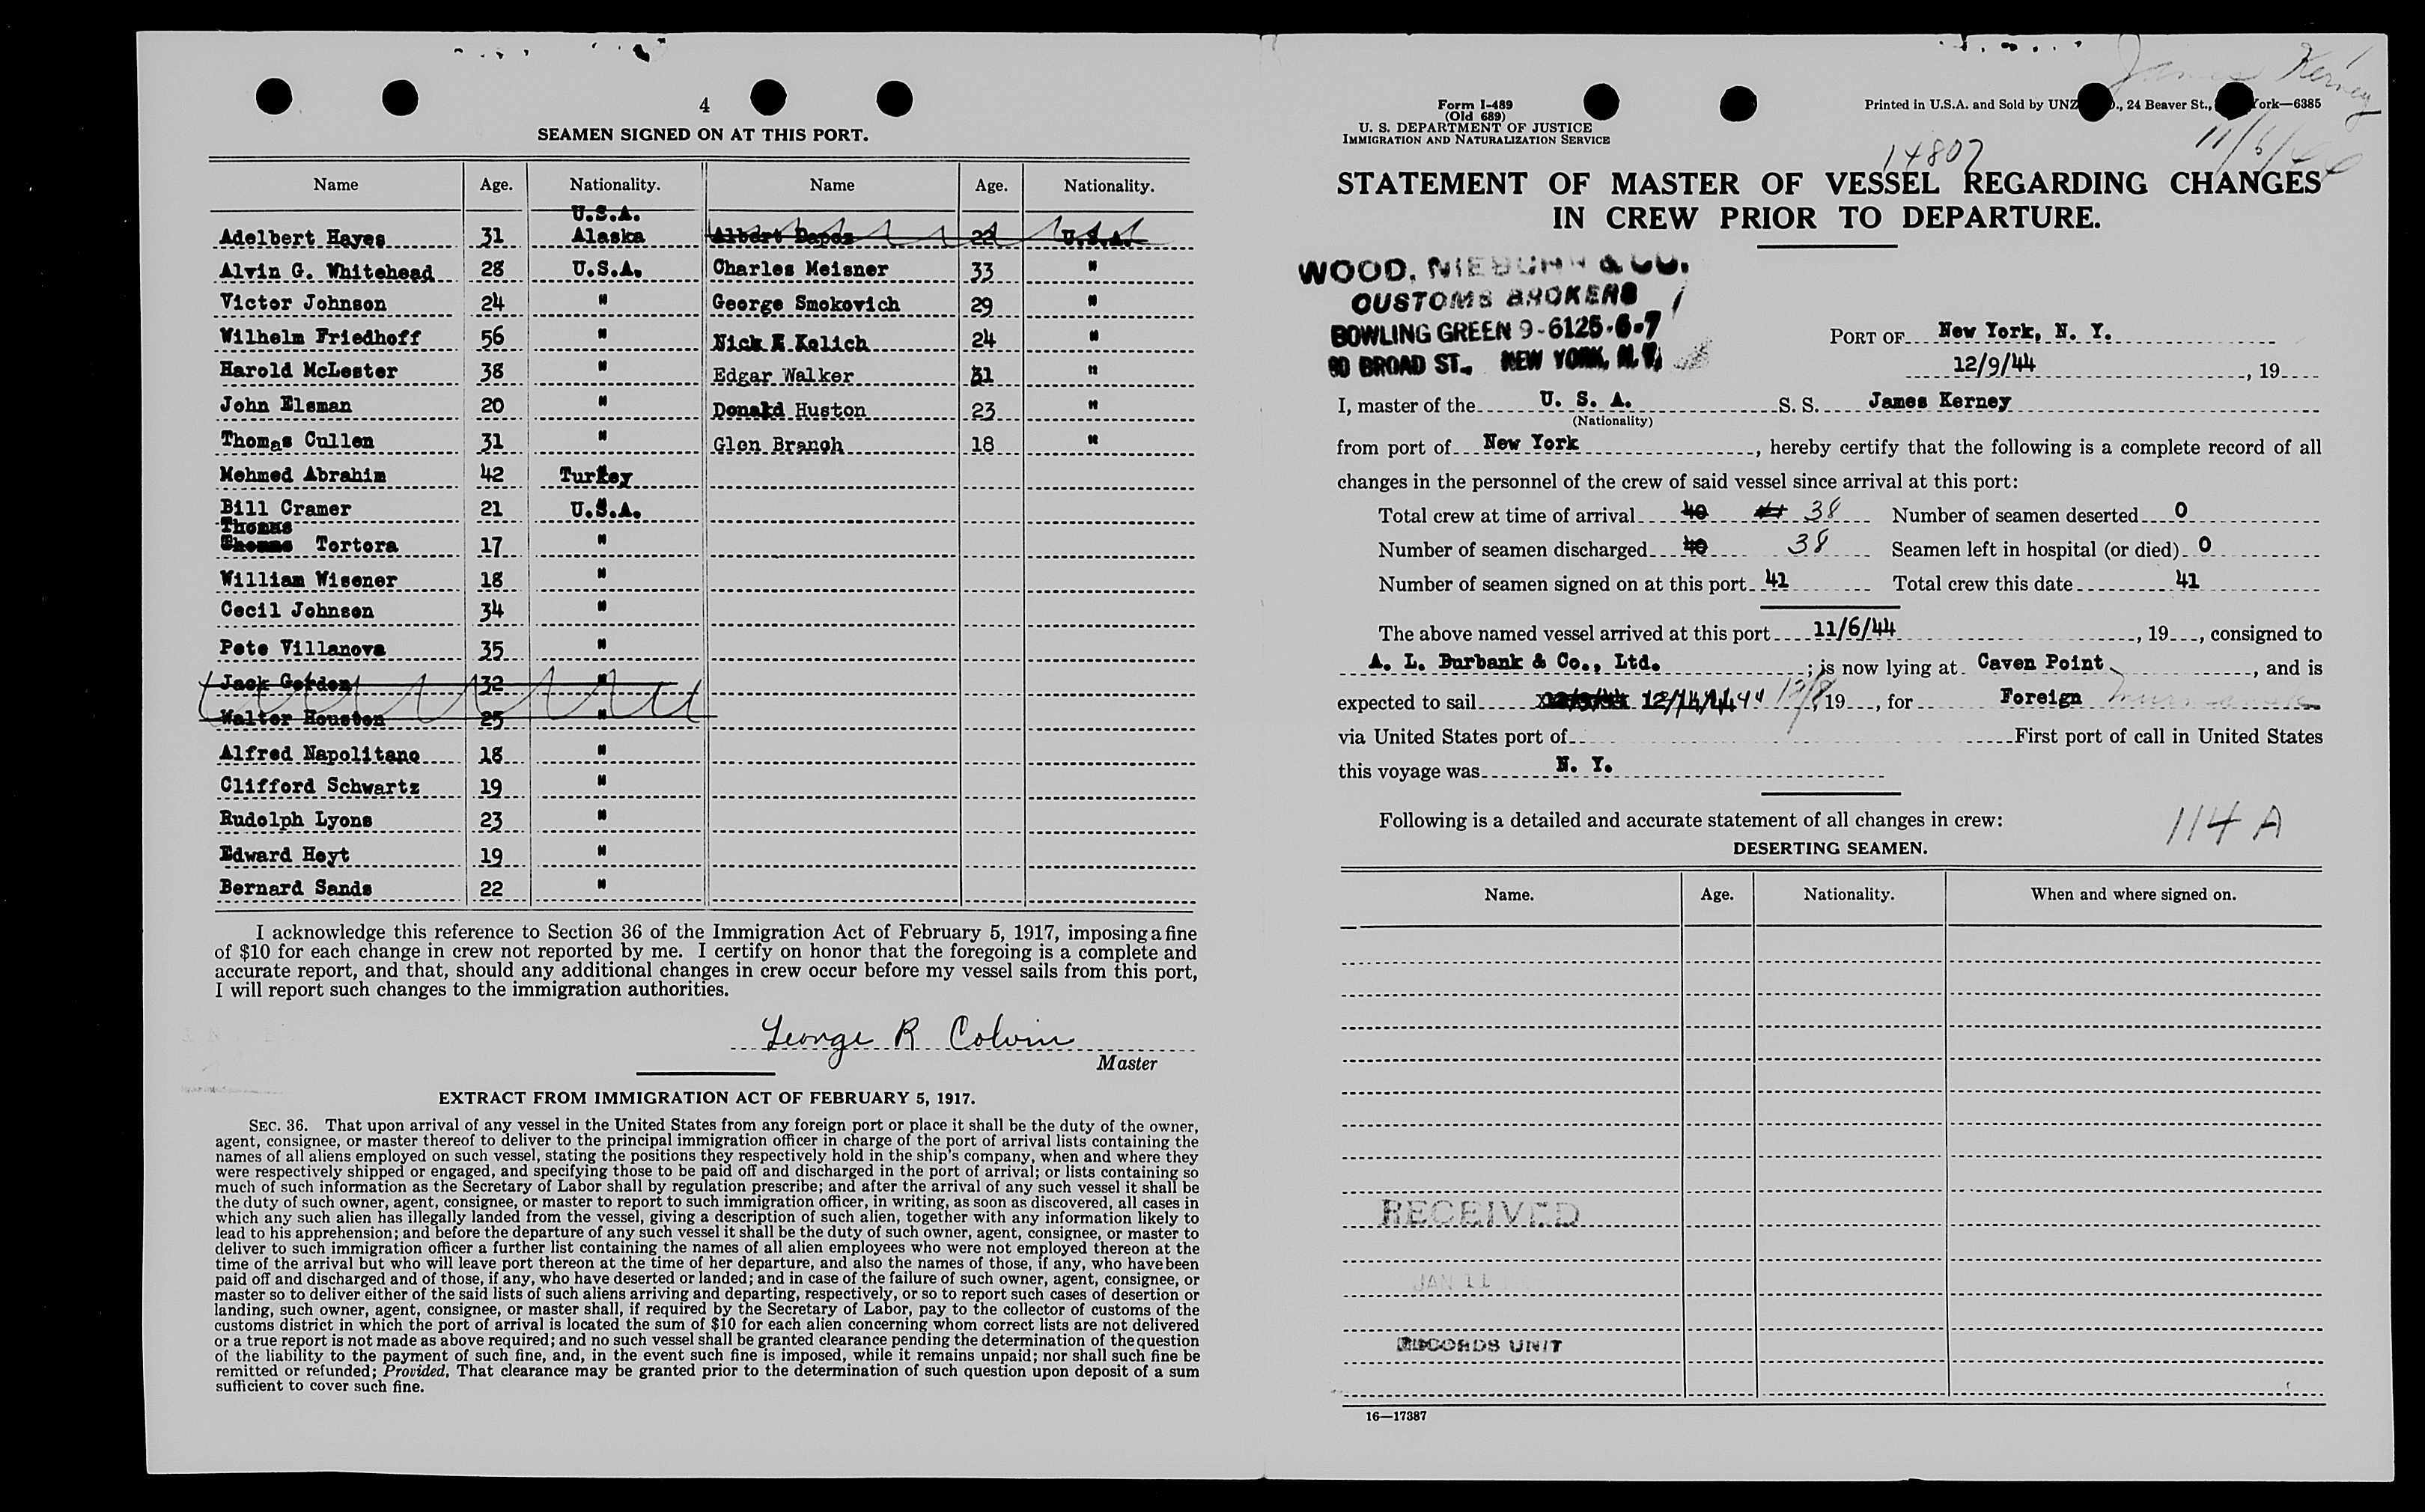 4
SEAMEN SIGNED ON AT THIS PORT.
Name Age. Nationality. Name Age. Nationality.
U.S.A.
Adelbert Hayes 31 Alaska Albert Depos 22 U.S.A.
Alvin G. Whitehead 28 U.S.A. Charles Meisner 33 "
Victor Johnson 24 " George Smokovich 29 "
Wilhelm Friedhoff 56 " Nick E Kelich 24 "
Harold McLester 38 " Edgar Walker 31 "
John Elsman 20 " Donald Huston 23 "
Thomas Cullen 31 " Glen Branch 18 "
Mehmed Abrahim 42 Turkey
Bill Cramer 21 U.S.A.
Thomas
Thomas Tortora 17 "
William Wisener 18 "
Cecil Johnson 34 "
Pete Villanova 35 "
Jack Gordon 32 "
Walter Houston 25 "
Alfred Napolitano 18 "
Clifford Schwartz 19 "
Rudolph Lyons 23 "
Edward Hoyt 19 "
Bernard Sands 22 "
I acknowledge this reference to Section 36 of the Immigration Act of February 5, 1917, imposing a fine
of $10 for each change in crew not reported by me. I certify on honor that the foregoing is a complete and
accurate report, and that, should any additional changes in crew occur before my vessel sails from this port,
I will report such changes to the immigration authorities.
George R Colvin
Master
EXTRACT FROM IMMIGRATION ACT OF FEBRUARY 5, 1917.
SEC. 36. That upon arrival of any vessel in the United States from any foreign port or place it shall be the duty of the owner,
agent, consignee, or master thereof to deliver to the principal immigration officer in charge of the port of arrival lists containing the
names of all aliens employed on such vessel, stating the positions they respectively hold in the ship's company, when and where they
were respectively shipped or engaged, and specifying those to be paid off and discharged in the port of arrival; or lists containing so
much of such information as the Secretary of Labor shall by regulation prescribe; and after the arrival of any such vessel it shall be
the duty of such owner, agent, consignee, or master to report to such immigration officer, in writing, as soon as discovered, all cases in
which any such alien has illegally landed from the vessel, giving a description of such alien, together with any information likely to
lead to his apprehension; and before the departure of any such vessel it shall be the duty of such owner, agent, consignee, or master to
deliver to such immigration officer a further list containing the names of all alien employees who were not employed thereon at the
time of the arrival but who will leave port thereon at the time of her departure, and also the names of those, if any, who have been
paid off and discharged and of those, if any, who have deserted or landed; and in case of the failure of such owner, agent, consignee, or
master so to deliver either of the said lists of such aliens arriving and departing, respectively, or so to report such cases of desertion or
landing, such owner, agent, consignee, or master shall, if required by the Secretary of Labor, pay to the collector of customs of the
customs district in which the port of arrival is located the sum of $10 for each alien concerning whom correct lists are not delivered
or a true report is not made as above required; and no such vessel shall be granted clearance pending the determination of the question
of the liability to the payment of such fine, and, in the event such fine is imposed, while it remains unpaid; nor shall such fine be
remitted or refunded; Provided, That clearance may be granted prior to the determination of such question upon deposit of a sum
sufficient to cover such fine.
James Kerney
11/6/44
Form I-489
(Old 689)
U. S. DEPARTMENT OF JUSTICE
IMMIGRATION AND NATURALIZATION SERVICE
Printed in U.S.A. and Sold by UNZ ., 24 Beaver St., York—6385
14807
STATEMENT OF MASTER OF VESSEL REGARDING CHANGES
IN CREW PRIOR TO DEPARTURE.
WOOD, NIEBUHR & CO.
CUSTOMS BROKERS
BOWLING GREEN 9-6125-6-7
80 BROAD ST., NEW YORK, N.Y.
PORT OF New York, N. Y.
12/9/44, 19
I, master of the U. S. A. S. S. James Kerney
(Nationality)
from port of New York, hereby certify that the following is a complete record of all
changes in the personnel of the crew of said vessel since arrival at this port:
Total crew at time of arrival 40 41 38 Number of seamen deserted 0
Number of seamen discharged 40 38 Seamen left in hospital (or died) 0
Number of seamen signed on at this port 41 Total crew this date 41
The above named vessel arrived at this port 11/6/44, 19, consigned to
A. L. Burbank & Co., Ltd.; is now lying at Caven Point, and is
expected to sail 12/14/44 12/8, 19, for Foreign
via United States port of First port of call in United States
this voyage was N. Y.
Following is a detailed and accurate statement of all changes in crew:
114 A
DESERTING SEAMEN.
Name. Age. Nationality. When and where signed on.
RECEIVED
JAN 11
RECORDS UNIT
16—17387